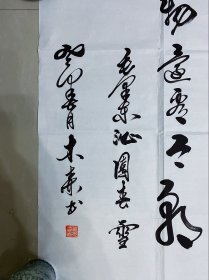 物還看今朝
毛澤東沁園春雪
癸卯春月木